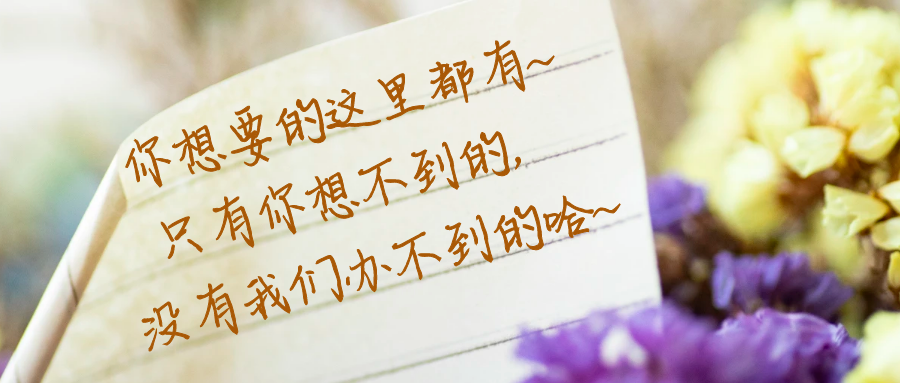 你想要的这里都有~
只有你想不到的,
没有我们办不到的哈~